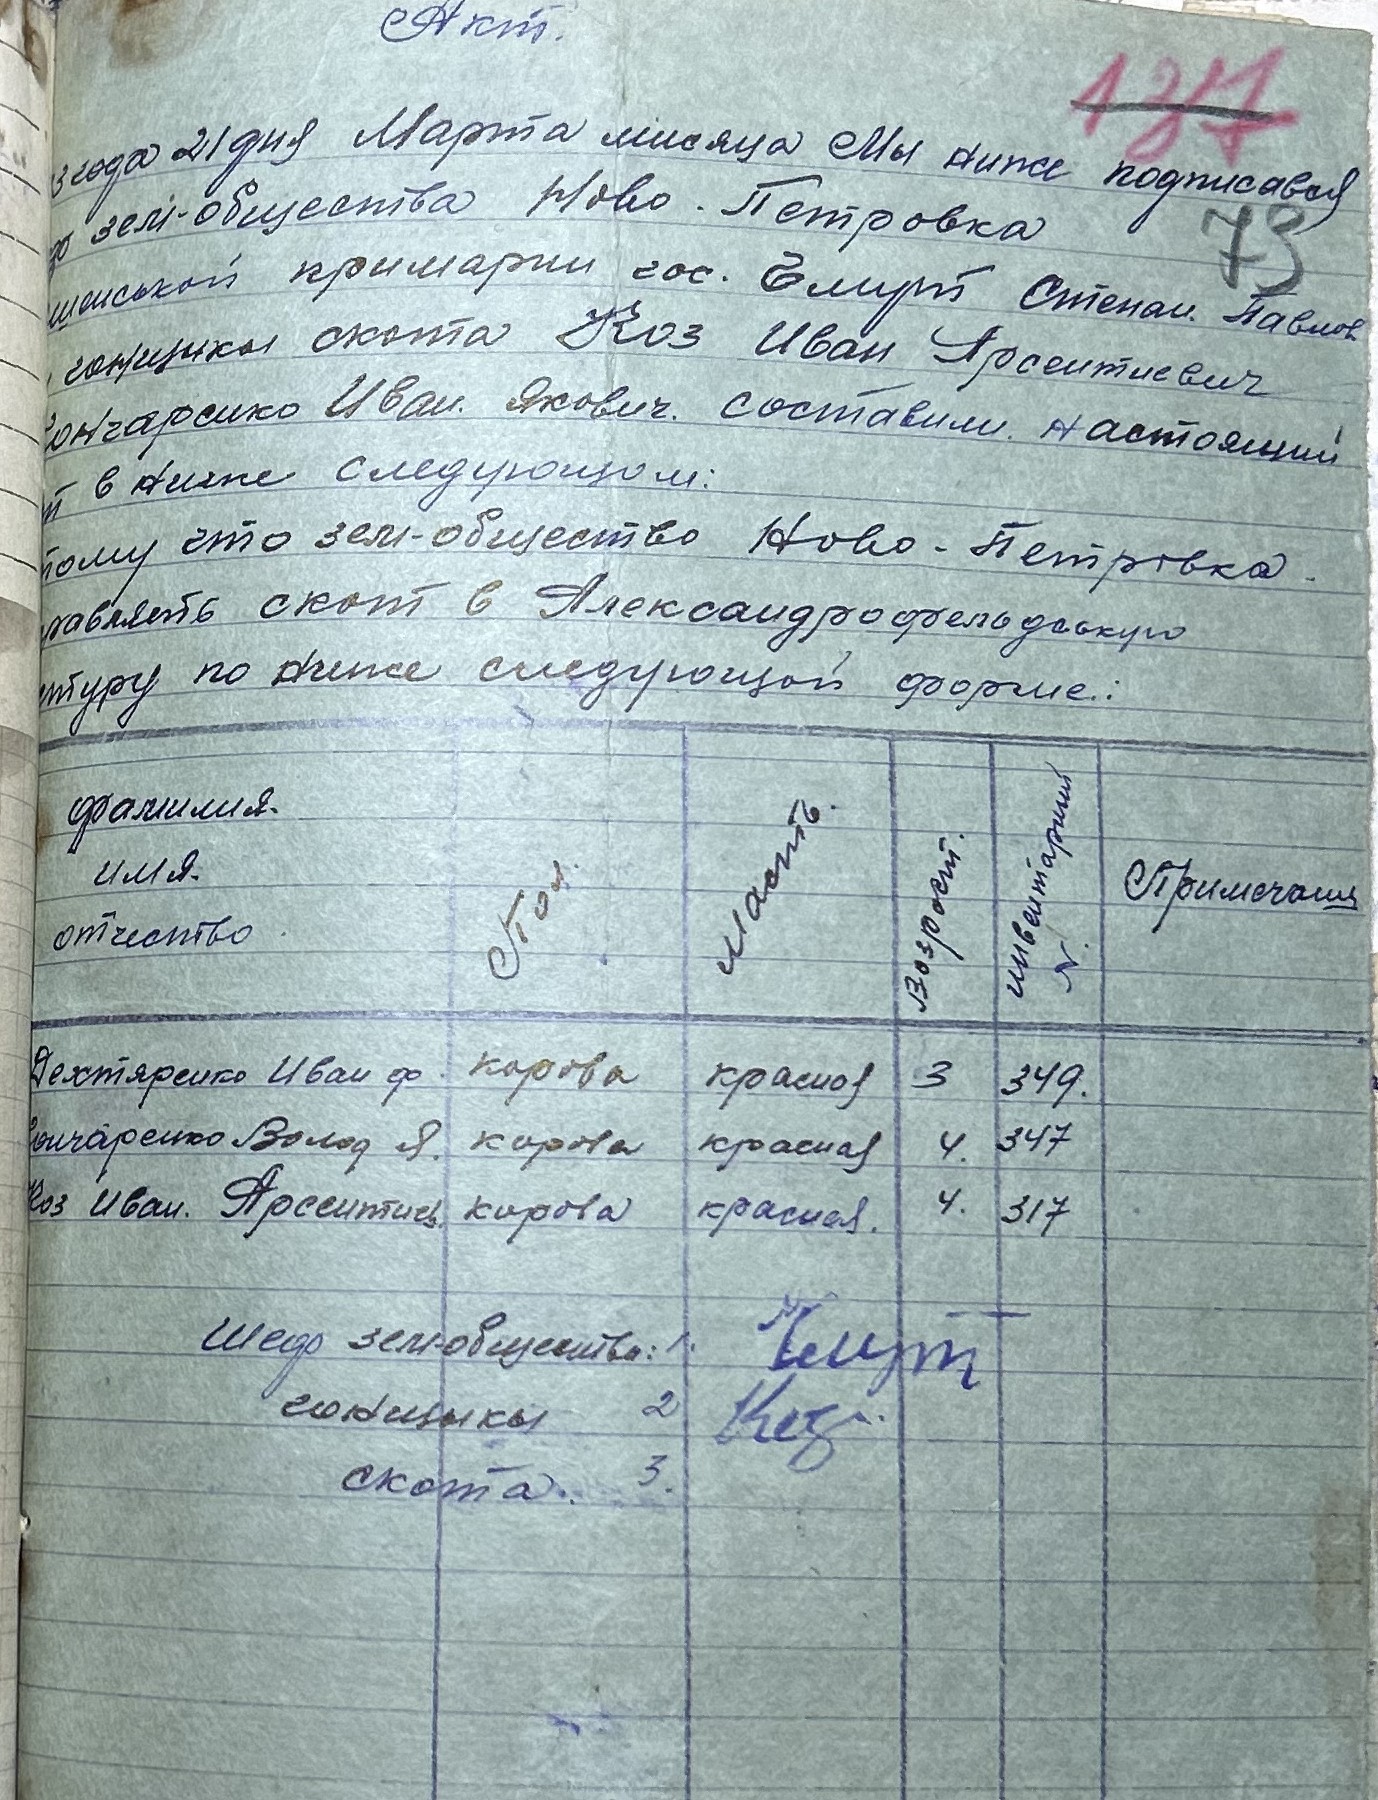 Акт.
137
3 года 21 дня Марта мисяца Мы ниже подписався
зем-общества Ново-Петровка
73
примарии гос. Степан. Павлов
гонщики скота Коз Иван Арсентиевич
Гончаренко Иван.Якович. составили настоящий
в ниже следующом:
тому что зем-общество Ново-Петрівка.
равлять скот в Александрофельдськую
нтуру по ниже следующой форме.:
фамилия. имя. отчество. Пол. Масть. Возрост. инвентарний N. Примечания
Дехтяренко Иван ф. корова красная 3 349.
Гончаренко Волод Я. корова красная 4. 347
Коз Иван. Арсентиев. корова красная. 4. 317
Шеф зем-общества: 1.
гонщики 2 Коз
скота. 3.